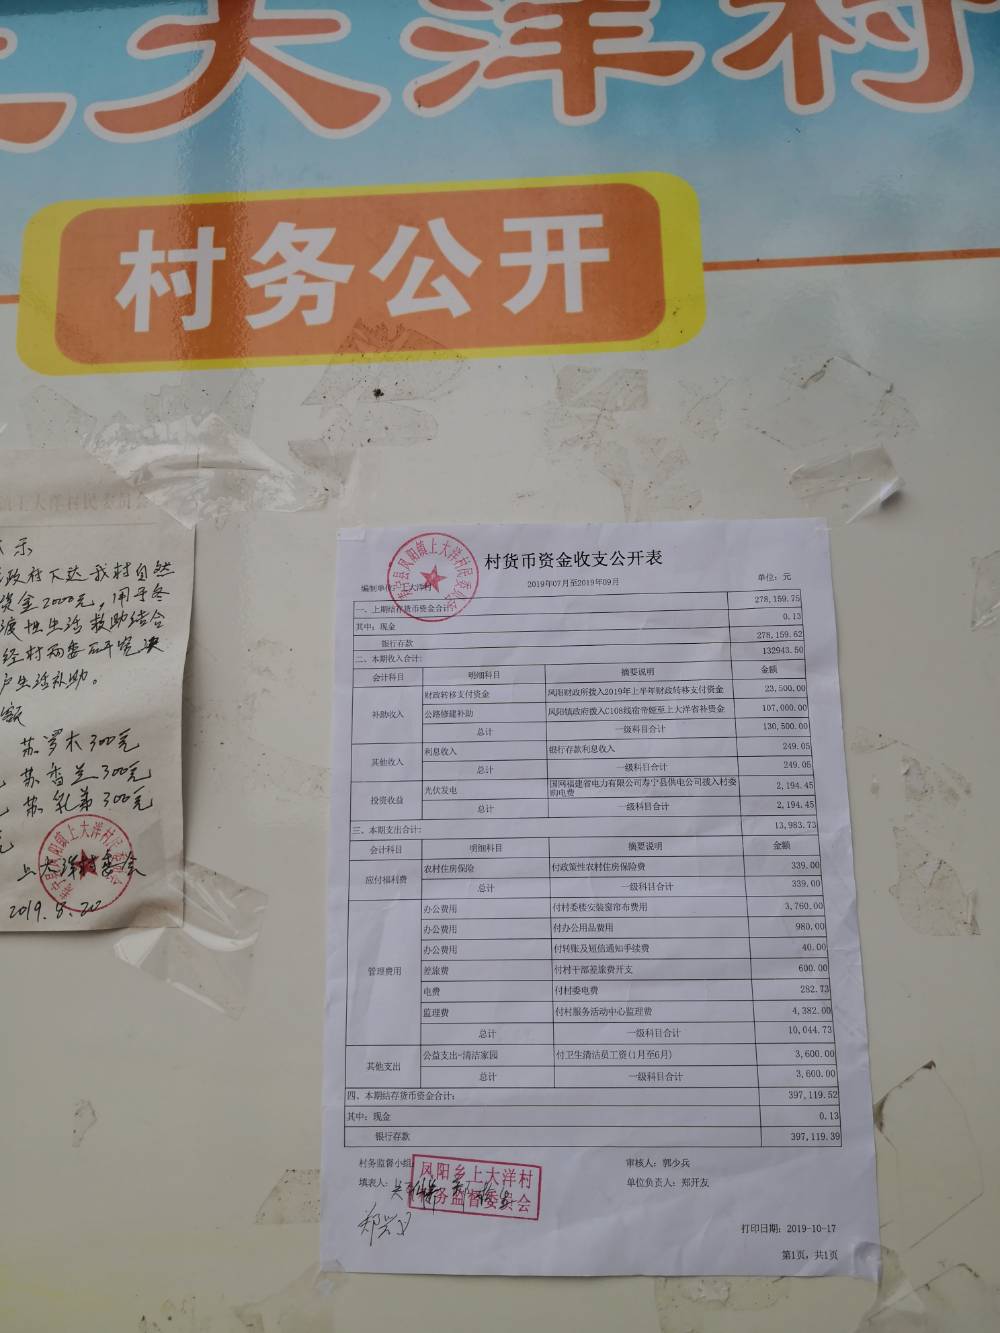 上大洋村
村务公开
镇上大洋村民委员会
示
政府下达我村自然
资金2000元，用于冬
生活救助结合
经村两委研究决
户生活补助。
额
苏罗木300元
苏香兰300元
苏乳弟300元
元
上大洋村委会
2019.8.20
村货币资金收支公开表
2019年07月至2019年09月
编制单位：上大洋村 单位：元
寿宁县凤阳镇上大洋村民委员会
一、上期结存货币资金合计： 278,159.75
其中：现金 0.13
银行存款 278,159.62
二、本期收入合计： 132943.50
会计科目 明细科目 摘要说明 金额
补助收入 财政转移支付资金 凤阳财政所拨入2019年上半年财政转移支付资金 23,500.00
公路修建补助 凤阳镇政府拨入C108线宿帝姬至上大洋省补资金 107,000.00
总计 一级科目合计 130,500.00
其他收入 利息收入 银行存款利息收入 249.05
总计 一级科目合计 249.05
投资收益 光伏发电 国网福建省电力有限公司寿宁县供电公司拨入村委购电费 2,194.45
总计 一级科目合计 2,194.45
三、本期支出合计： 13,983.73
会计科目 明细科目 摘要说明 金额
应付福利费 农村住房保险 付政策性农村住房保险费 339.00
总计 一级科目合计 339.00
管理费用 办公费用 付村委楼安装窗帘布费用 3,760.00
办公费用 付办公用品费用 980.00
办公费用 付转账及短信通知手续费 40.00
差旅费 付村干部差旅费开支 600.00
电费 付村委电费 282.73
监理费 付村服务活动中心监理费 4,382.00
总计 一级科目合计 10,044.73
其他支出 公益支出-清洁家园 付卫生清洁员工资(1月至6月) 3,600.00
总计 一级科目合计 3,600.00
四、本期结存货币资金合计： 397,119.52
其中：现金 0.13
银行存款 397,119.39
村务监督小组： 审核人：郭少兵
填表人： 单位负责人：郑开友
凤阳乡上大洋村
务监督委员会
打印日期：2019-10-17
第1页，共1页